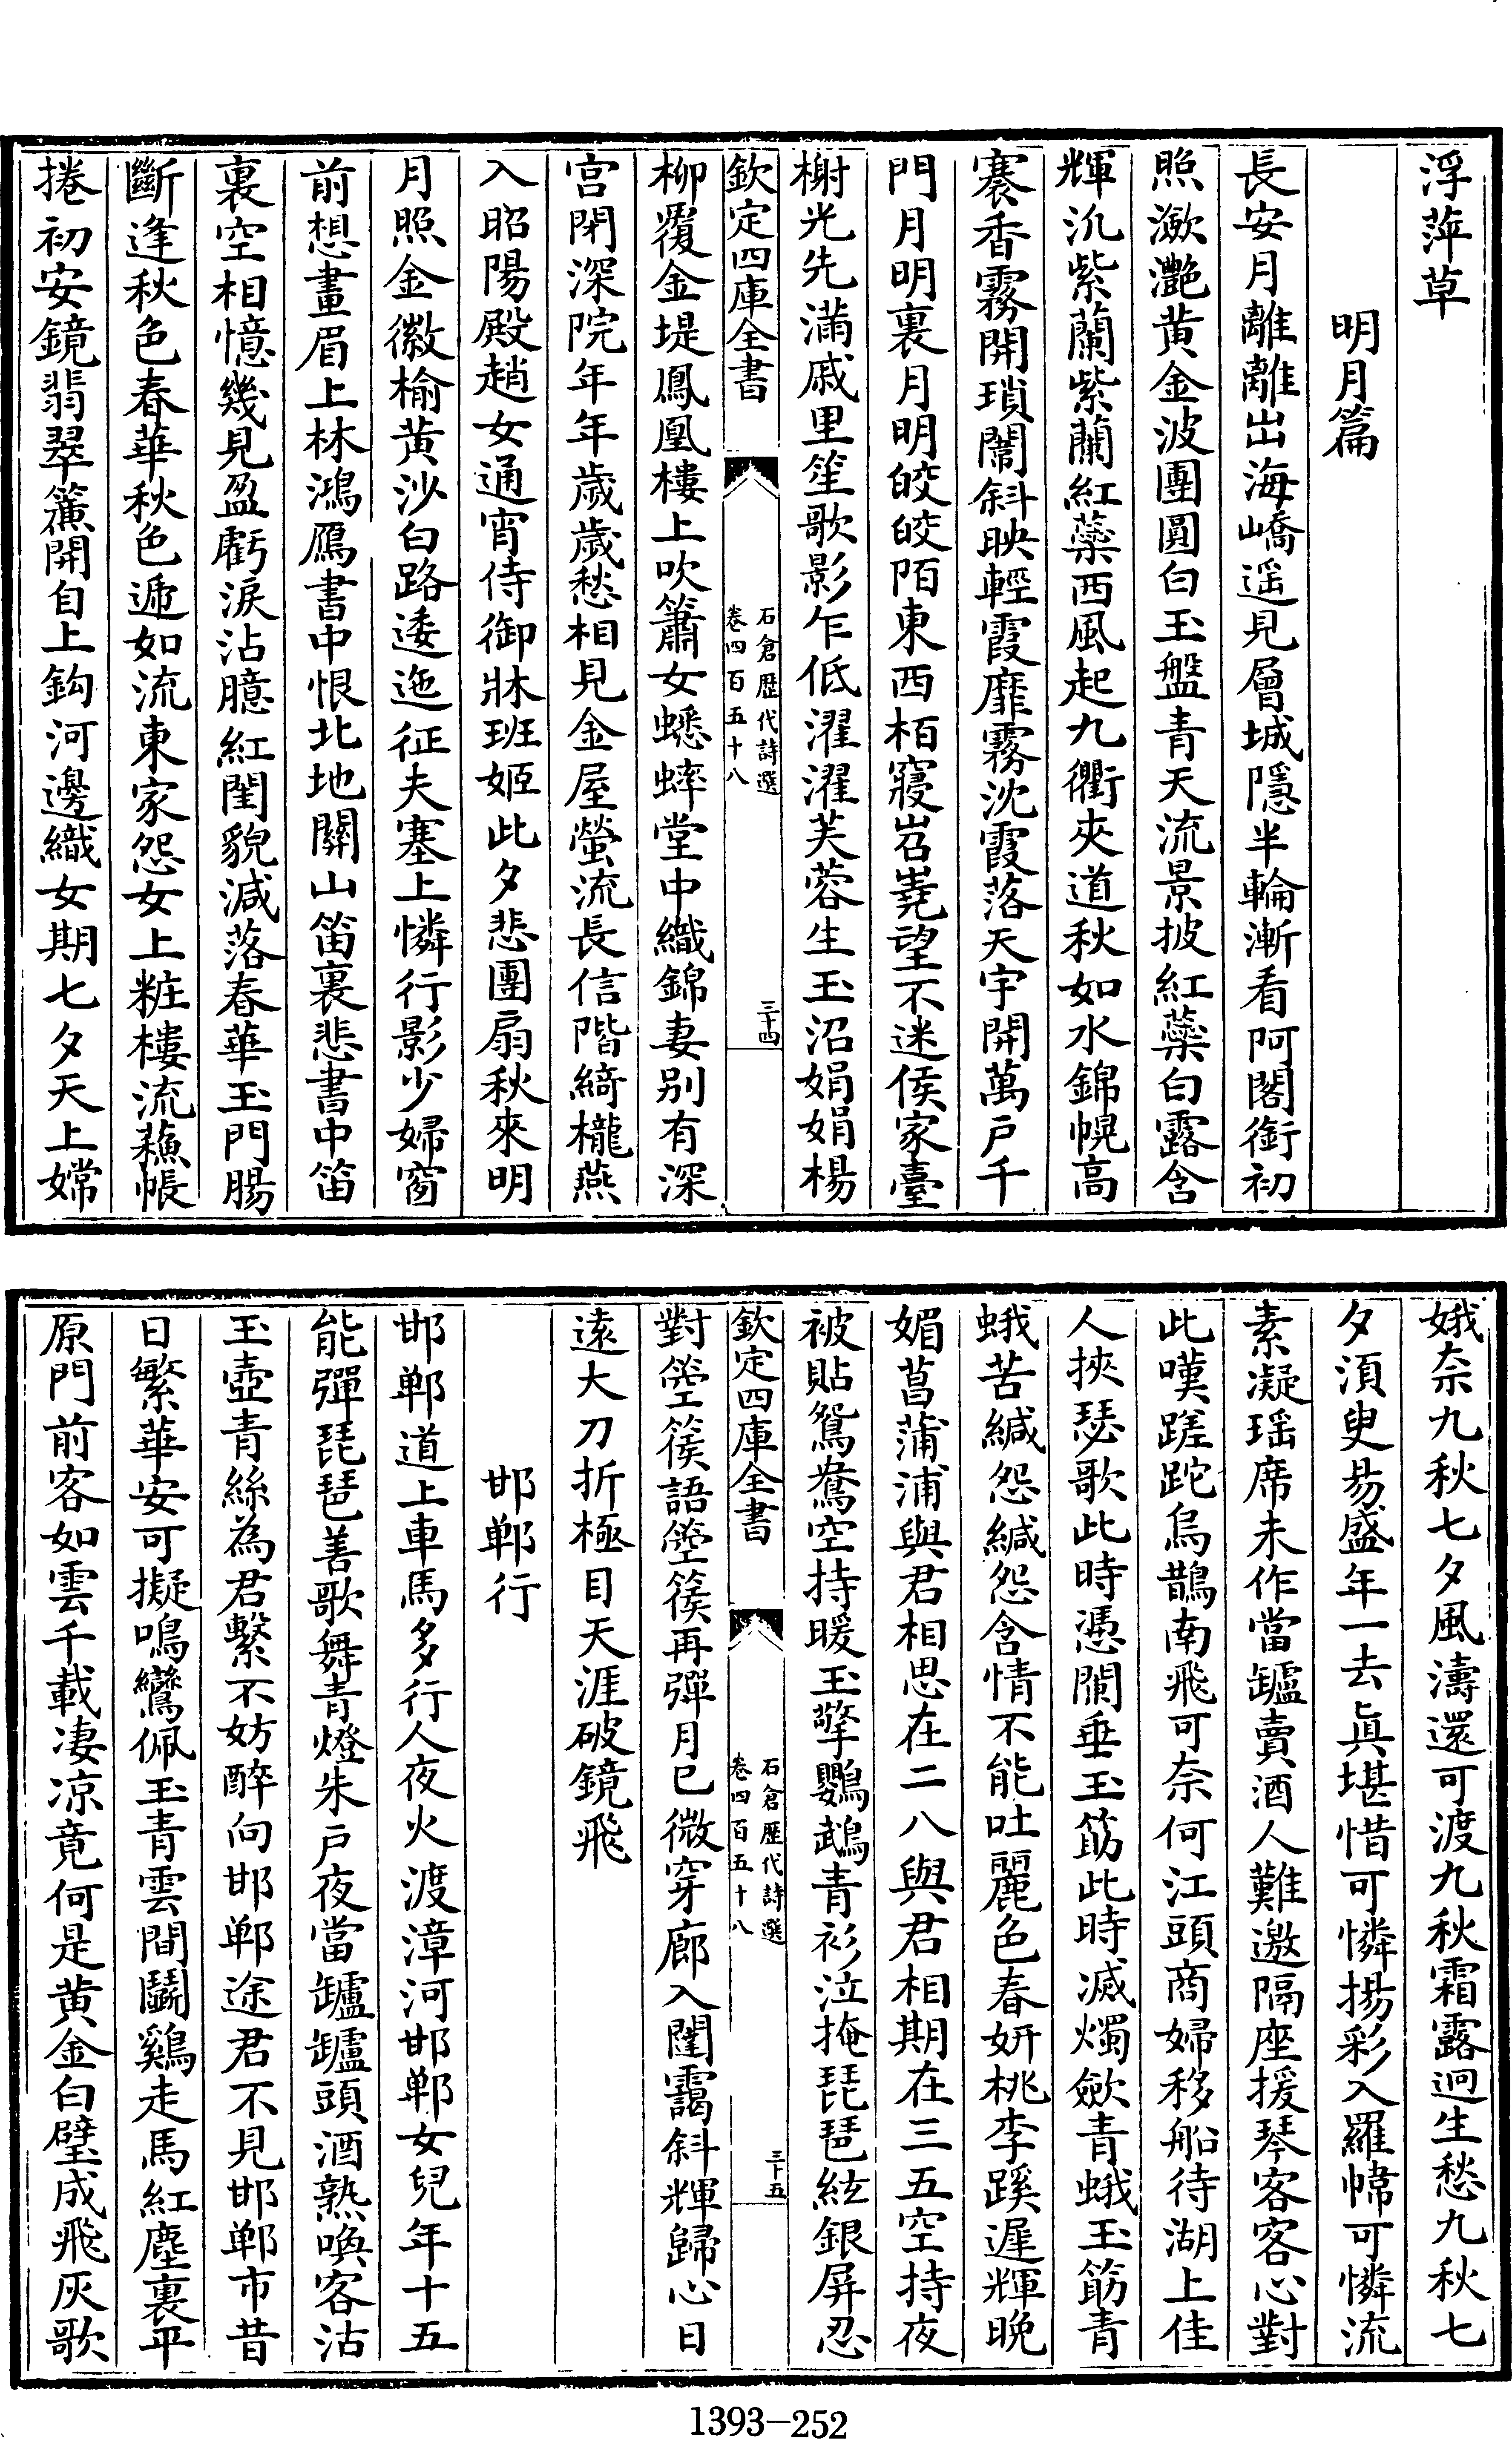 浮萍草
明月篇
長安月離離出海嶠遥見層城隱半輪漸看阿閣銜初
照潋灧黄金波團圓白玉盤青天流景披紅蘂白露含
輝氿紫蘭紫蘭紅蘂西風起九衢夾道秋如水錦幌高
褰香霧開瑣闈斜映輕霞靡霧沈霞落天宇開萬户千
門月明裏月明皎皎陌東西栢寢岧嶤望不迷侯家臺
榭光先滿戚里笙歌影乍低濯濯芙蓉生玉沼娟娟楊
欽定四庫全書
石倉歴代詩選
卷四百五十八
三十四
柳覆金堤鳳凰樓上吹簫女蟋蟀堂中織錦妻别有深
宫閉深院年年歲歲愁相見金屋螢流長信階綺櫳燕
入昭陽殿趙女通宵侍御牀班姬此夕悲團扇秋來明
月照金徽榆黄沙白路逶迤征夫塞上憐行影少婦窗
前想畫眉上林鴻鴈書中恨北地關山笛裏悲書中笛
裏空相憶幾見盈虧淚沾臆紅閨貌減落春華玉門腸
斷逢秋色春華秋色遞如流東家怨女上粧樓流蘇帳
捲初安鏡翡翠簾開自上鈎河邊織女期七夕天上嫦
娥奈九秋七夕風濤還可渡九秋霜露迥生愁九秋七
夕須臾易盛年一去真堪惜可憐揚彩入羅幃可憐流
素凝瑶席未作當罏賣酒人難邀隔座援琴客客心對
此嘆蹉跎烏鵲南飛可奈何江頭商婦移船待湖上佳
人挾瑟歌此時憑闌垂玉筯此時滅燭斂青蛾玉筯青
蛾苦緘怨緘怨含情不能吐麗色春妍桃李蹊遲輝晚
媚菖蒲浦與君相思在二八與君相期在三五空持夜
被貼鴛鴦空持暖玉擎鸚鵡青衫泣掩琵琶絃銀屏忍
欽定四庫全書
石倉歴代詩選
卷四百五十八
三十五
對箜篌語箜篌再彈月已微穿廊入闈靄斜輝歸心日
遠大刀折極目天涯破鏡飛
邯鄲行
邯鄲道上車馬多行人夜火渡漳河邯鄲女兒年十五
能彈琵琶善歌舞青燈朱户夜當罏罏頭酒熟喚客沽
玉壺青絲為君繫不妨醉向邯鄲途君不見邯鄲市昔
日繁華安可擬鳴鸞佩玉青雲間鬭鷄走馬紅塵裏平
原門前客如雲千載凄凉竟何是黄金白璧成飛灰歌
1393-252